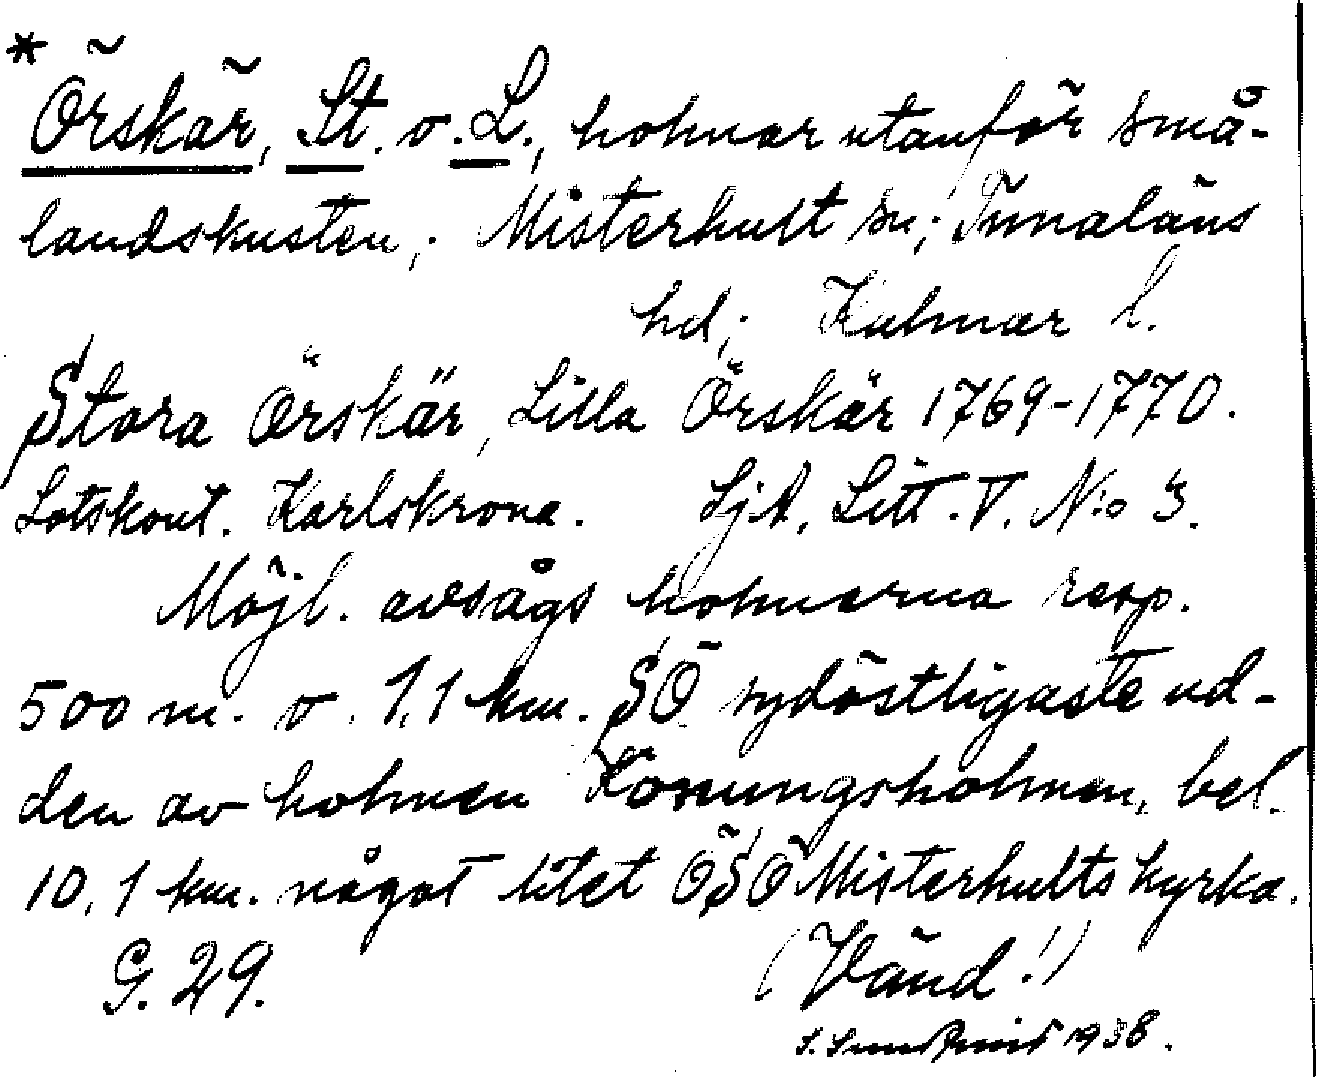 * Örskär, St. o. L., holmar utanför små-
landskusten; Misterhult sn; Tunaläns
hd; Kalmar l.
Stora Örskär, Lilla Örskär 1769-1770.
Lotskont. Karlskrona. SjA. Litt. V. N:o 3.
Möjl. avsågs holmarna resp.
500 m. o. 1,1 km. SÖ sydöstligaste ud-
den av holmen Konungsholmen, bel.
10,1 km. något litet ÖSÖ Misterhults kyrka.
G. 29. (Vänd!)
S. 1938.